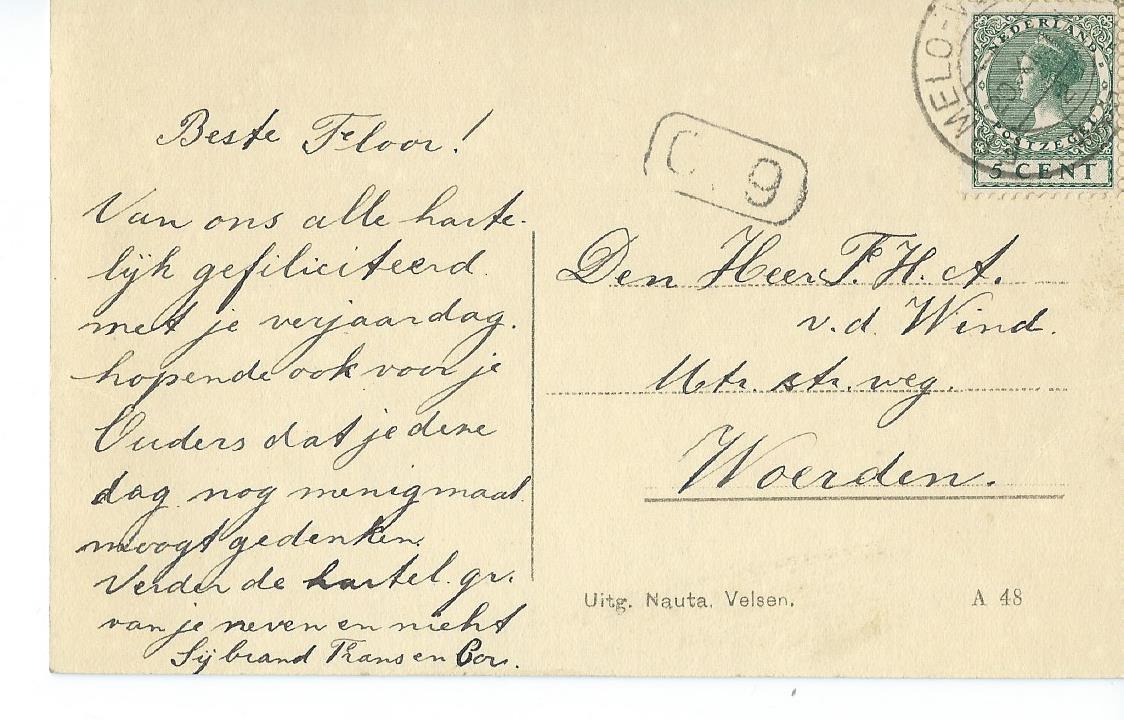 Beste Floor!
Van ons alle harte-
lijk gefiliciteerd
met je verjaardag.
hopende ook voor je
Ouders dat je deze
dag nog menigmaal
moogt gedenken.
Verder de hartel. gr.
van je neven en nicht
Sijbrand Frans en Cor.
C. 9
MELO-
NEDERLAND
POSTZEGEL
5 CENT
Den Heer F. H. A.
v. d. Wind.
Utr. str. weg.
Woerden.
Uitg. Nauta, Velsen.
A 48